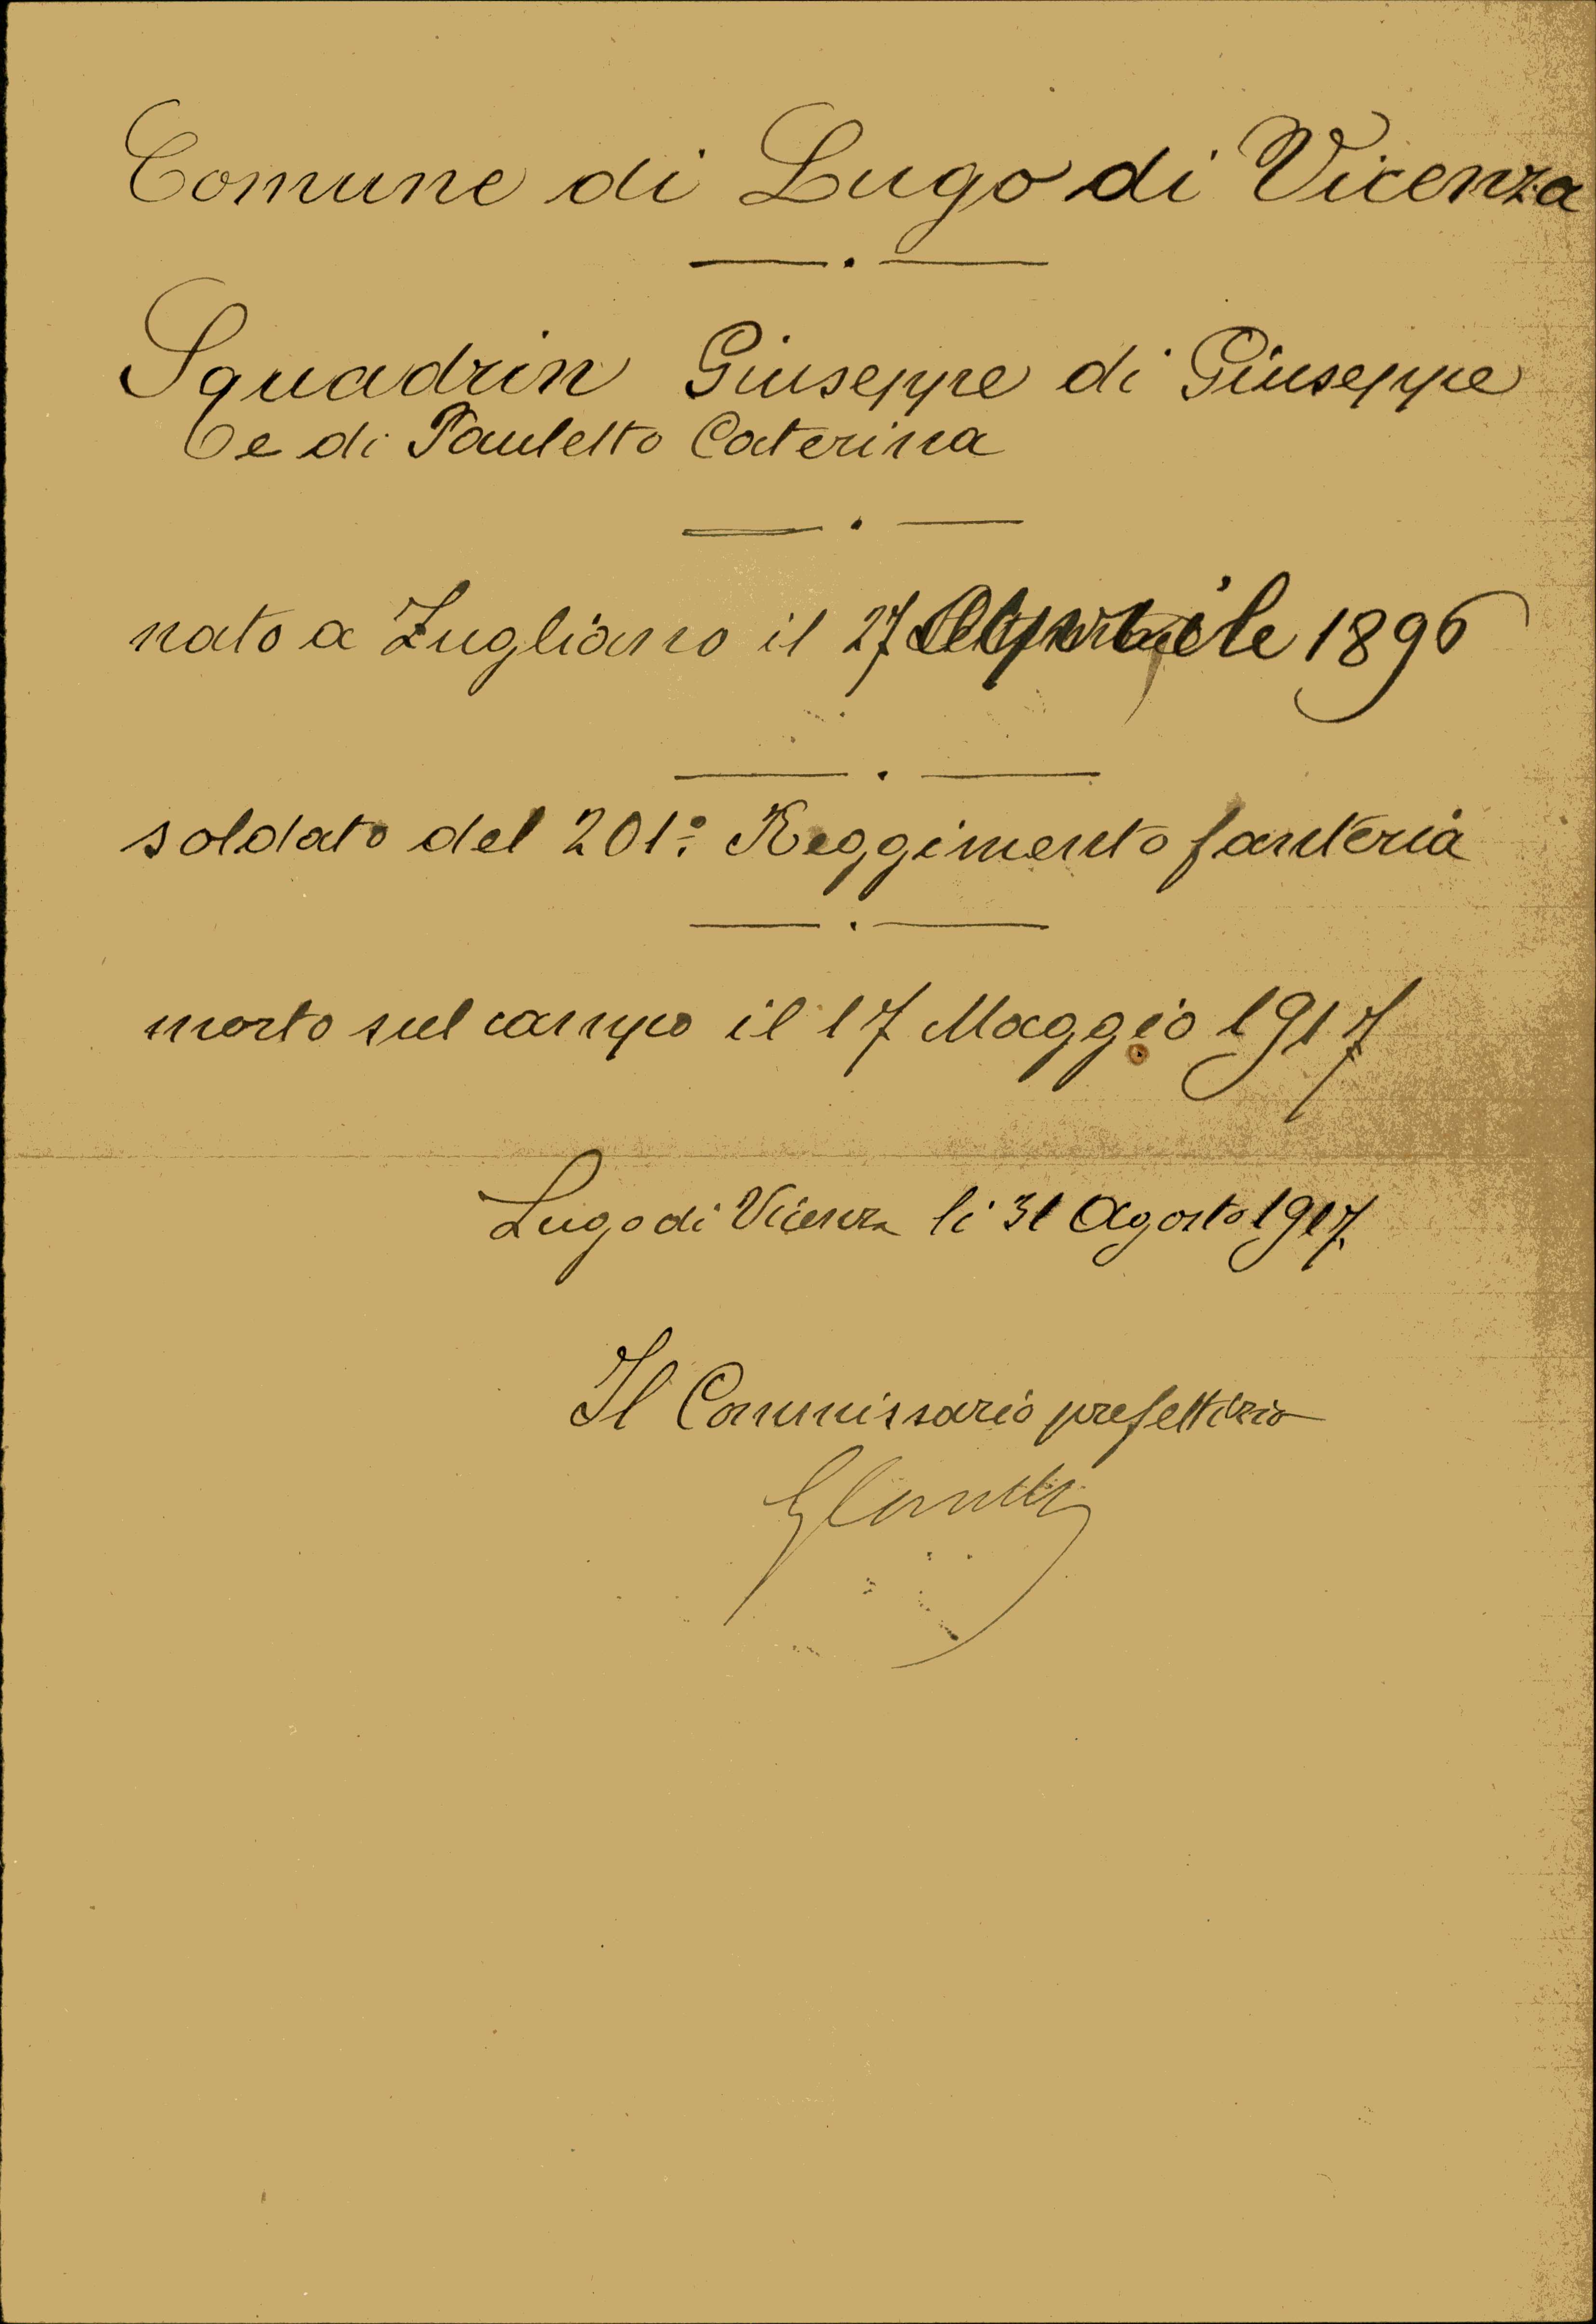 Comune di Lugo di Vicenza
Squadrin Giuseppe di Giuseppe
e di Pauletto Caterina
nato a Zugliano il 27 Aprile 1896
soldato del 201º Reggimento fanteria
morto sul campo il 17 Maggio 1917
Lugo di Vicenza li 31 Agosto 1917.
Il Commissario prefettizio